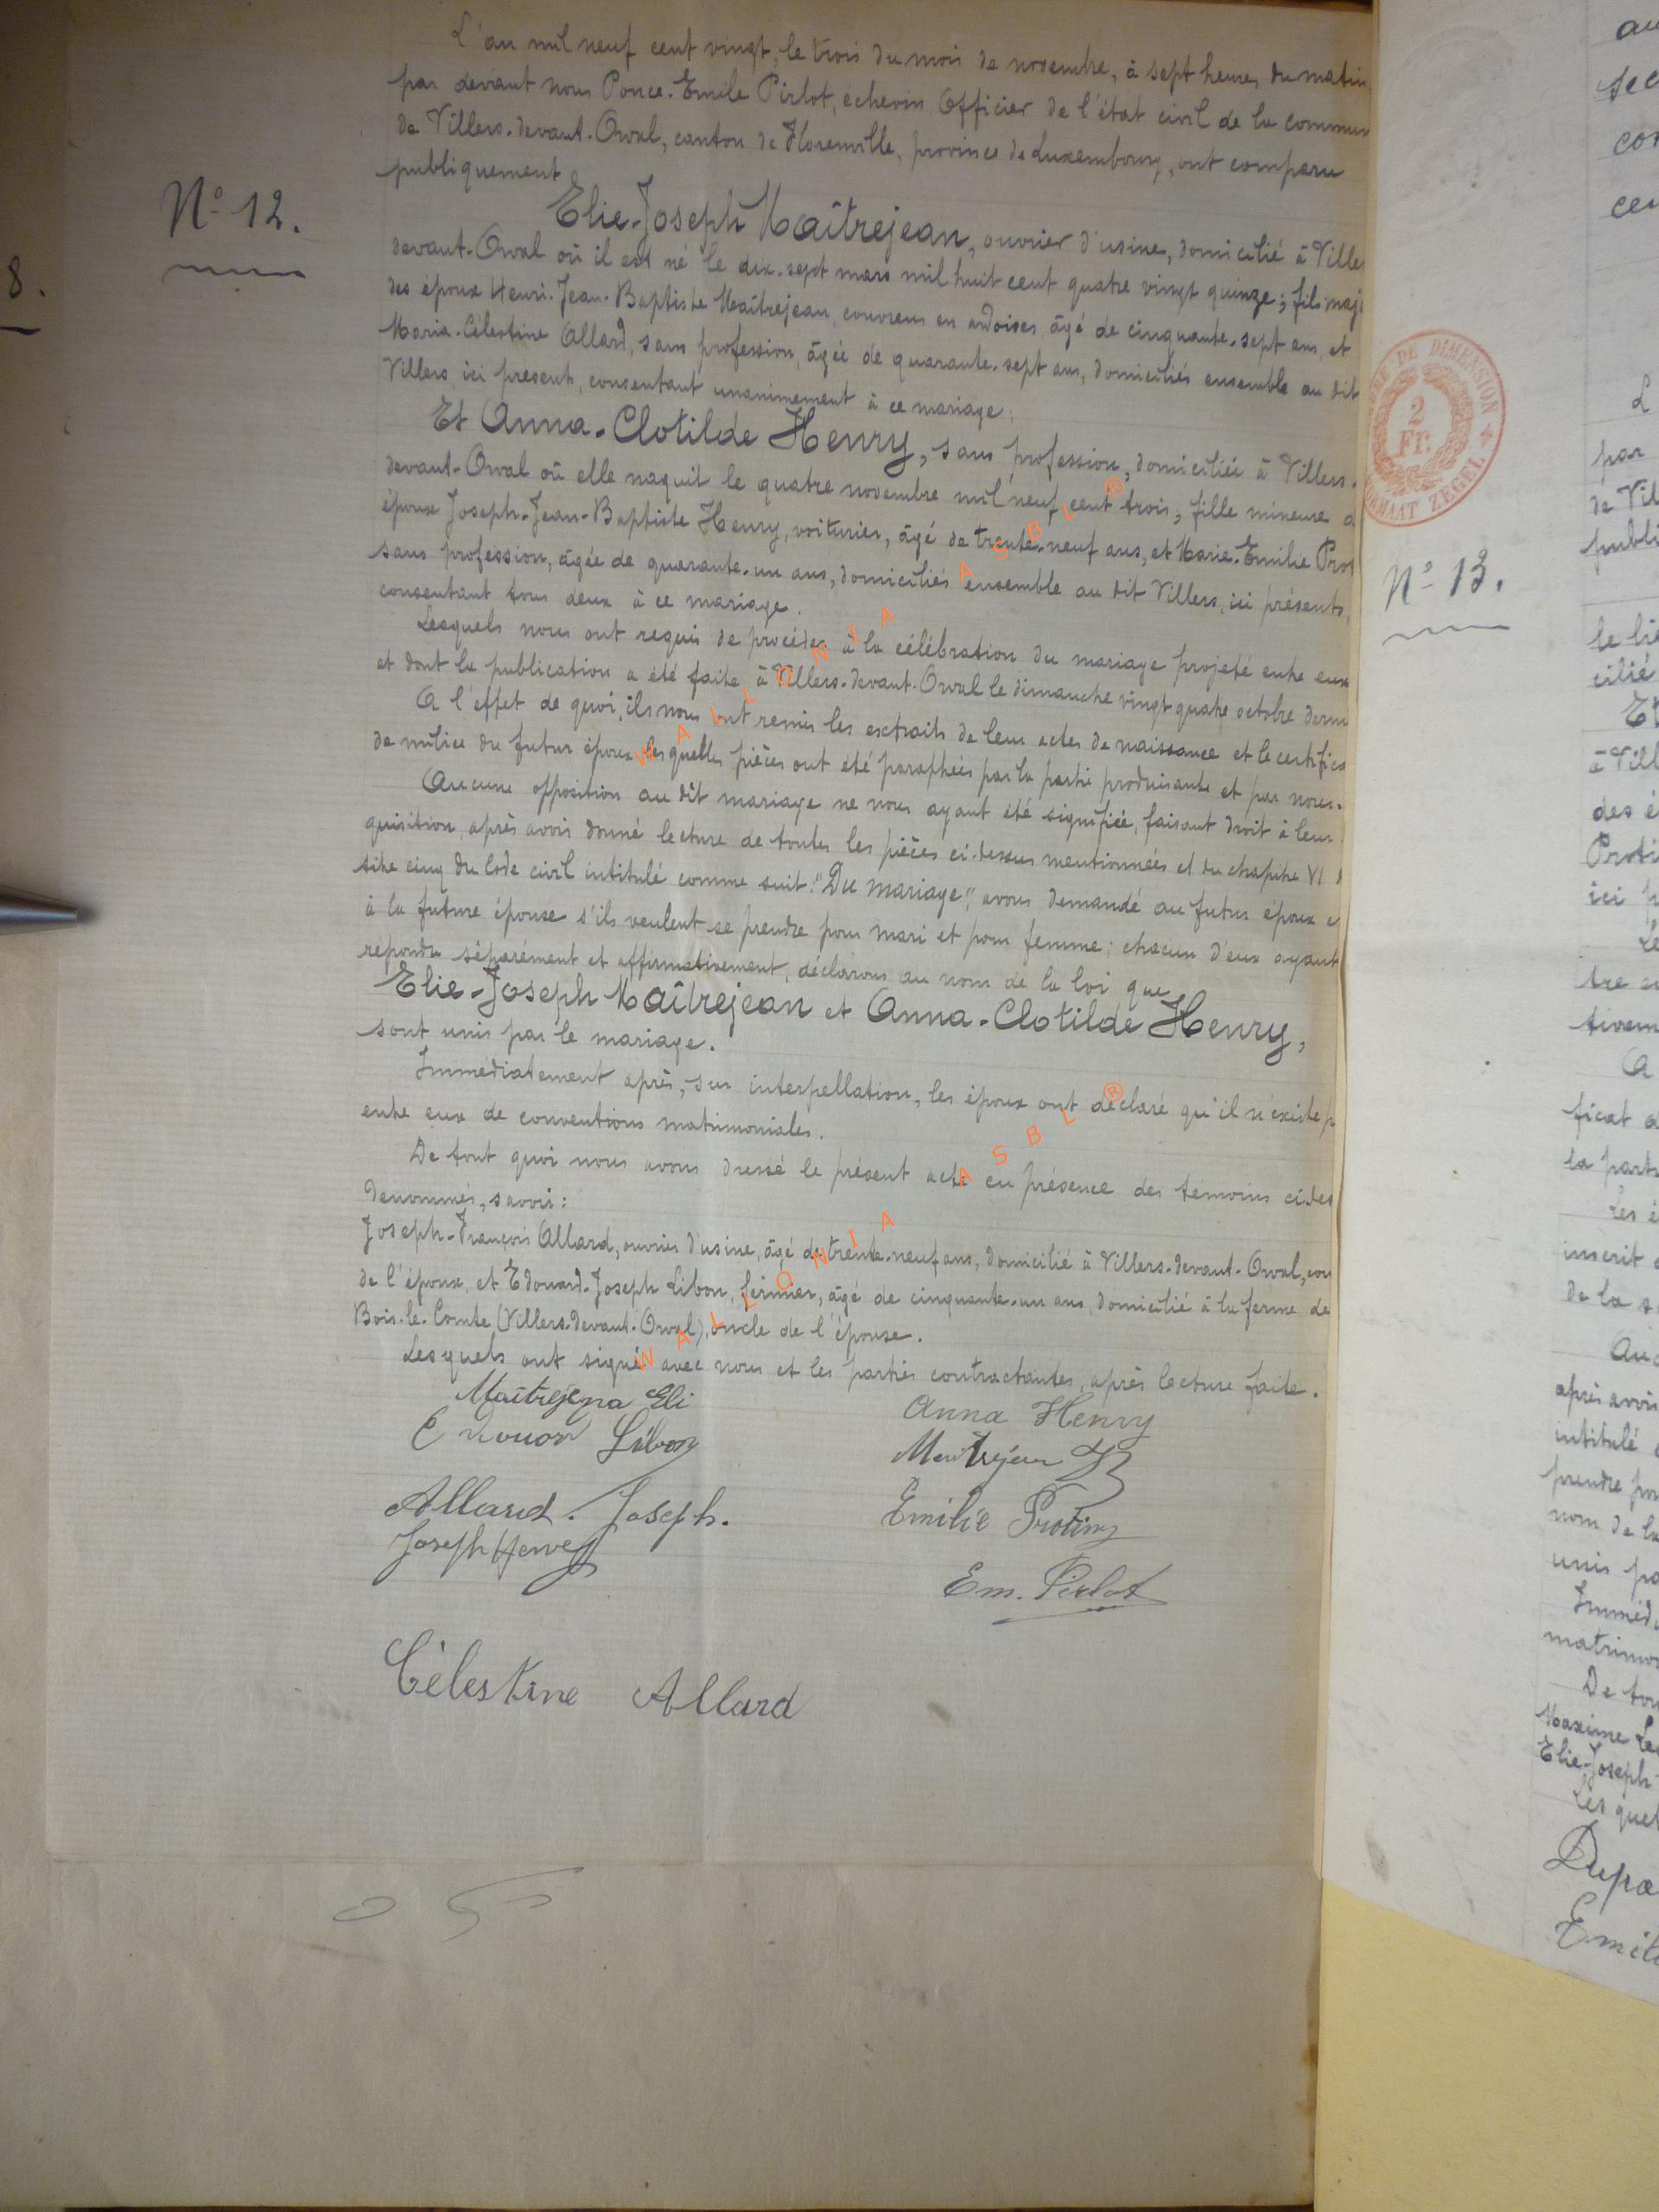 L'an mil neuf cent vingt, le trois du mois de novembre, à sept heures du matin
par devant nous Ponce-Emile Pirlot, echevin Officier de l'état civil de la commun
de Villers-devant-Orval, canton de Florenville, province de Luxembourg, ont comparu
publiquement
N° 12.
8.
Elie-Joseph Maîtrejean, ouvrier d'usine, domicilié à Ville
devant-Orval où il est né le dix-sept mars mil huit cent quatre vingt quinze; fils maj
des époux Henri-Jean-Baptiste Maîtrejean, couvreur en ardoises, âgé de cinquante-sept ans, et
Maria-Célestine Allard, sans profession, âgée de quarante-sept ans, domiciliés ensemble au dit
Villers, ici présents, consentant unanimement à ce mariage;
Et Anna-Clotilde Henry, sans profession, domiciliée à Villers-
devant-Orval où elle naquit le quatre novembre mil neuf cent trois; fille mineure d
époux Joseph-Jean-Baptiste Henry, voiturier, âgé de trente-neuf ans, et Marie-Emilie Prot
sans profession, âgée de quarante-un ans, domiciliés ensemble au dit Villers, ici présents,
consentant tous deux à ce mariage.
Lesquels nous ont requis de procéder à la célébration du mariage projeté entre eux
et dont la publication a été faite à Villers-devant-Orval le dimanche vingt quatre octobre derni
A l'effet de quoi, ils nous ont remis les extraits de leur actes de naissance et le certifica
de milice du futur époux lesquelles pièces ont été paraphées par la partie produisante et par nous.
Aucune opposition au dit mariage ne nous ayant été signifiée, faisant droit à leur
quisition, après avoir donné lecture de toutes les pièces ci-dessus mentionnées et du chapitre VI d
titre cinq du Code civil intitulé comme suit: "Du mariage", avons demandé au futur époux e
à la future épouse s'ils veulent se prendre pour mari et pour femme; chacun d'eux ayant
répondu séparément et affirmativement, déclarons au nom de la loi que
Elie-Joseph Maîtrejean et Anna-Clotilde Henry,
sont unis par le mariage.
Immédiatement après, sur interpellation, les époux ont déclaré qu'il n'existe p
entre eux de conventions matrimoniales.
De tout quoi nous avons dressé le présent acte en présence des témoins ci-des
dénommés, savoir:
Joseph-François Allard, ouvrier d'usine, âgé de trente-neuf ans, domicilié à Villers-devant-Orval, cou
de l'époux, et Edouard-Joseph Libon, fermier, âgé de cinquante-un ans, domicilié à la ferme de
Bois-le-Comte (Villers-devant-Orval), oncle de l'épouse.
Lesquels ont signé avec nous et les parties contractantes, après lecture faite.
Maîtrejena Eli
Anna Henry
Edouor Libon
Allard. Joseph.
Emilie Protin
Joseph Henry
Em. Pirlot
Célestine Allard
WALLONIA ASBL ®
WALLONIA ASBL ®
DE DIMENSION
2
Fr.
FORMAAT ZEGEL
N° 13.
au
cen
L
par
de Vil
publi
cilié
Et
à Vill
des é
Proti
ici p
tre eu
tivem
A
ficat d
la parti
Les é
inscrit
de la
Auc
après avoir
intitulé
prendre po
nom de la
unis pa
Immédi
matrimo
De tou
Maxime Le
Elie-Joseph
Les quel
Dupo
Emile